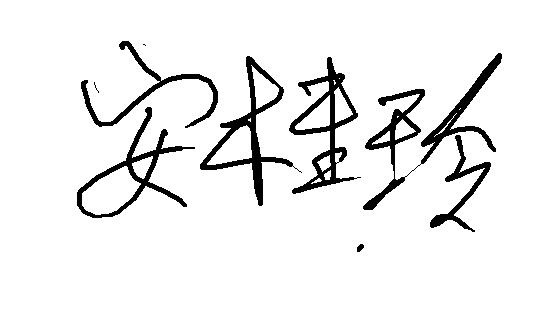 安桂珍